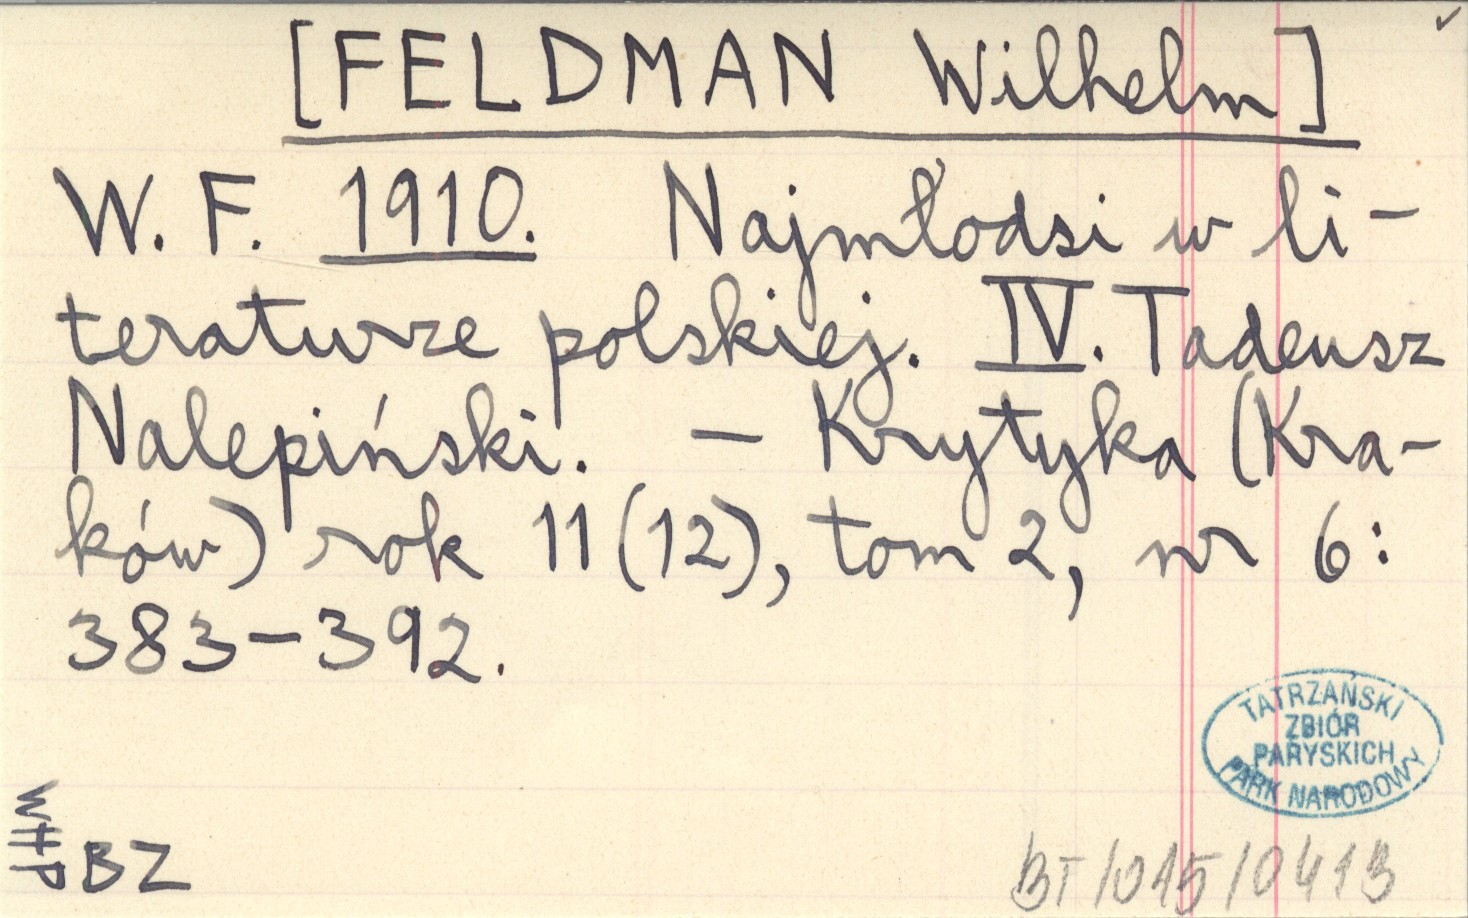 [FELDMAN Wilhelm]
W. F. 1910. Najmłodsi w li-
teraturze polskiej. IV. Tadeusz
Nalepiński. – Krytyka (Kra-
ków) rok 11 (12), tom 2, nr 6:
383–392.
TATRZAŃSKI
ZBIÓR
PARYSKICH
PARK NARODOWY
WHP
BZ
BT/015/0413